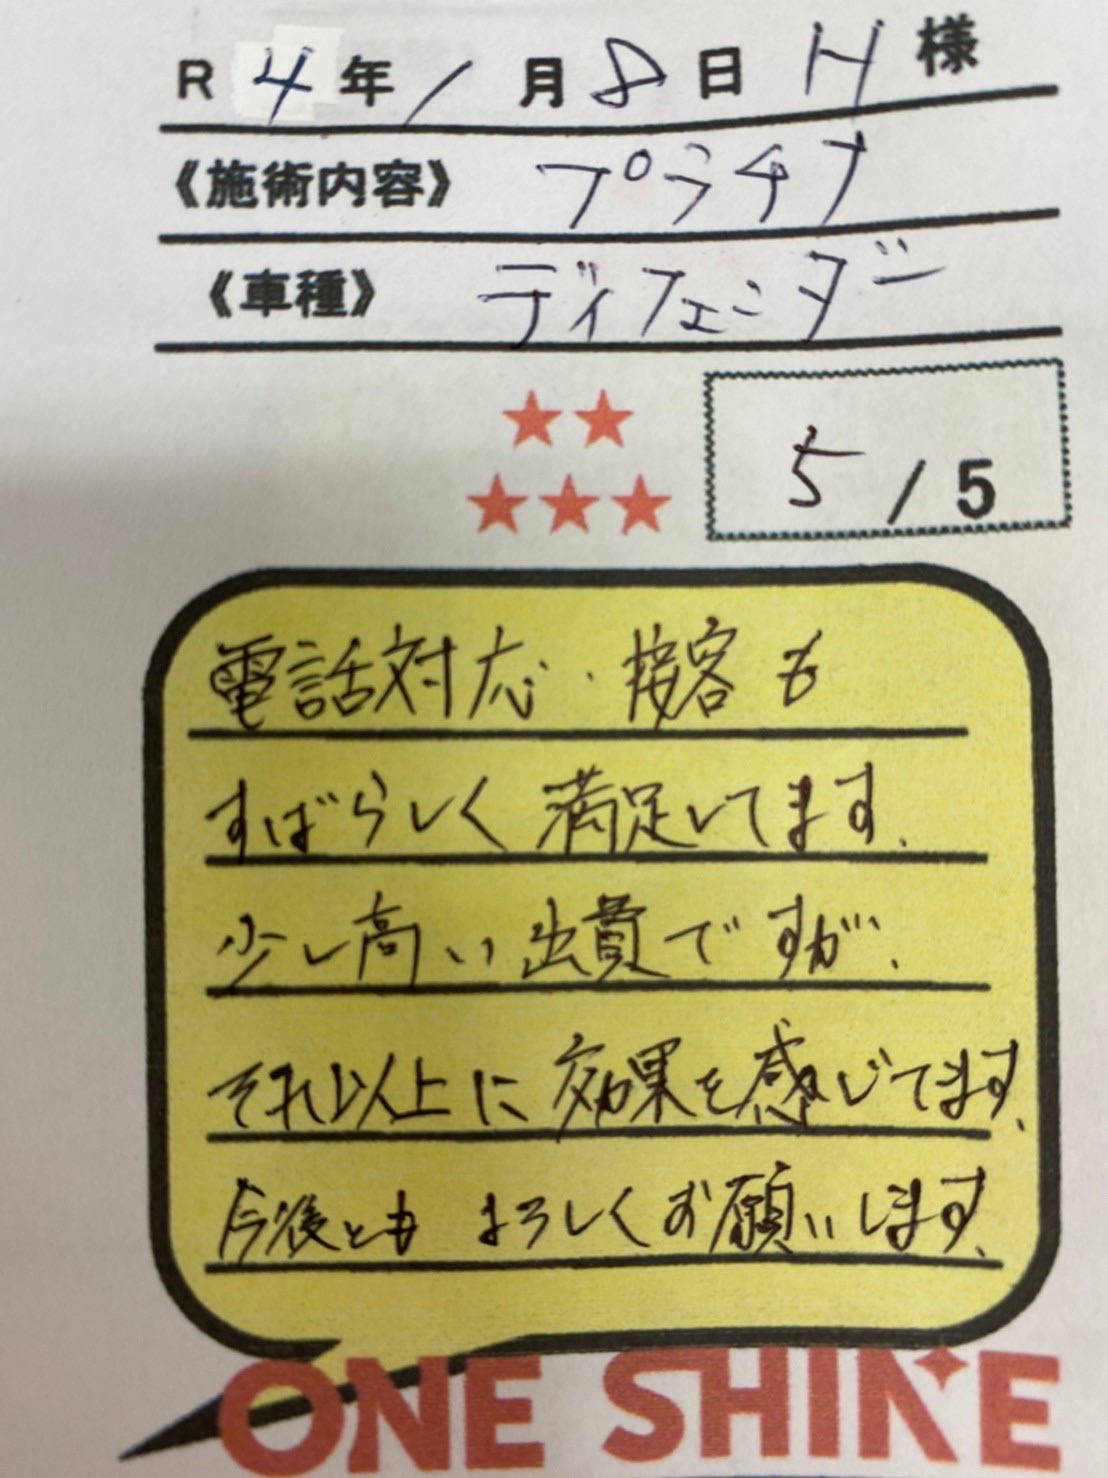 R 4年 1月 8日 H 様
《施術内容》 プラチナ
《車種》 ディフェンダー
★★
★★★
5 / 5
電話対応・接客も
すばらしく満足してます.
少し高い出費ですが、
それ以上に効果を感じてます、
今後ともよろしくお願いします、
ONE SHINE